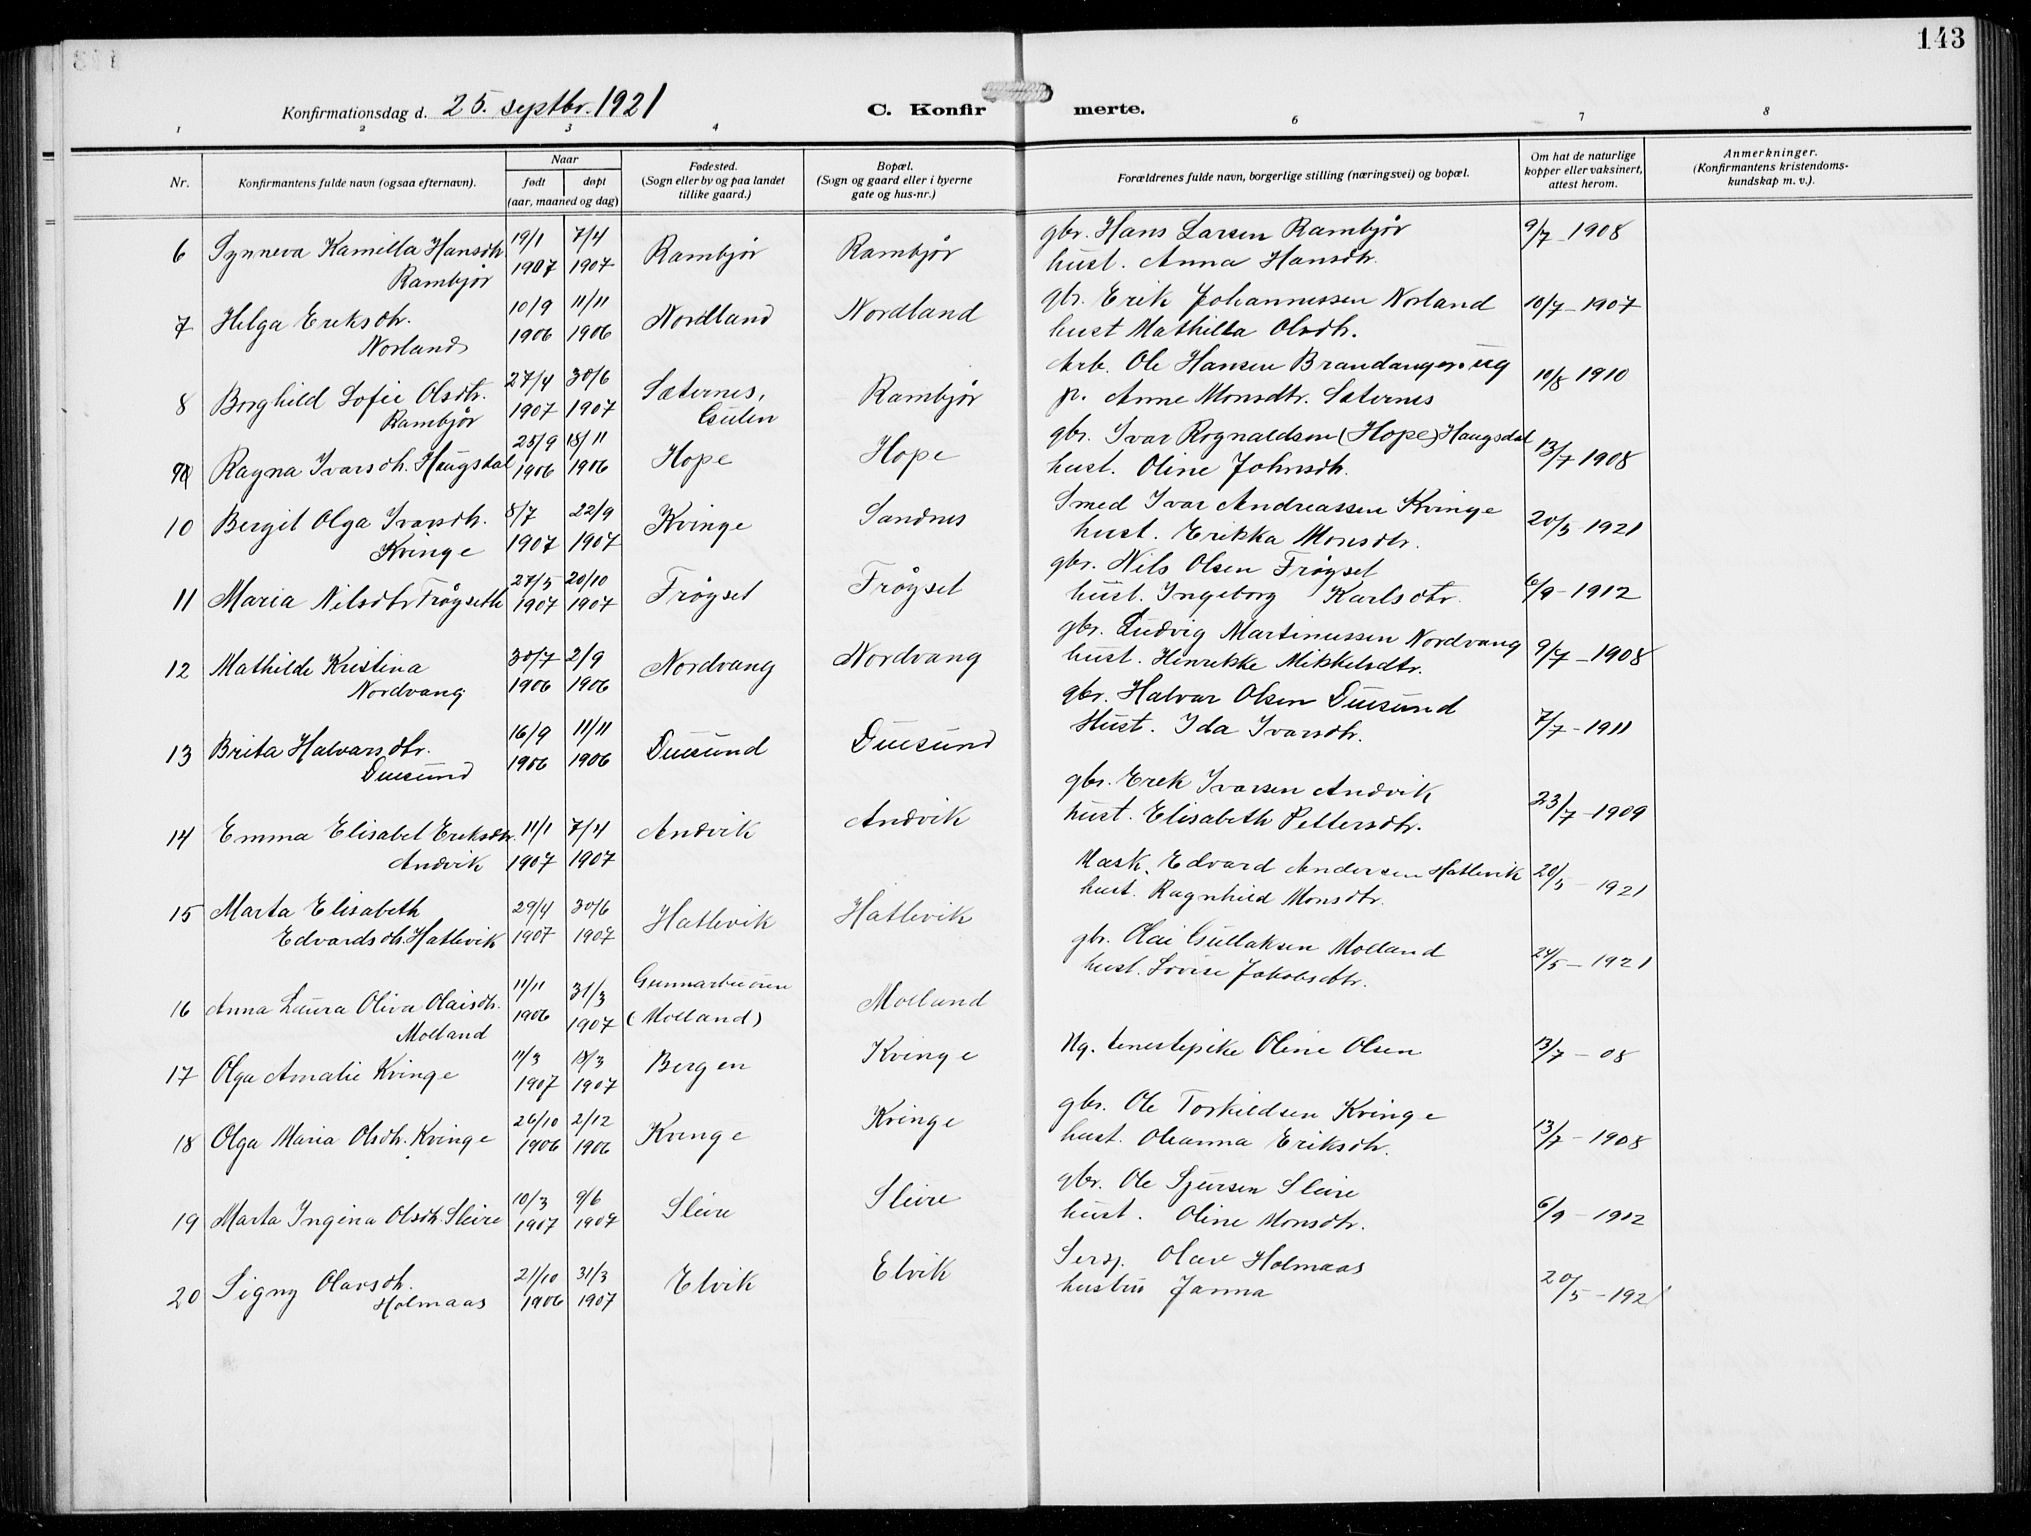 143
Konfirmationsdag d. 25. septbr. 1921
C. Konfirmerte.
1 2 3 4 6 7 8
Nr.
Konfirmantens fulde navn (ogsaa efternavn).
Naar
født døpt
(aar, maaned og dag)
Fødested.
(Sogn eller by og paa landet
tillike gaard.)
Bopæl.
(Sogn og gaard eller i byerne
gate og hus-nr.)
Forældrenes fulde navn, borgerlige stilling (næringsvei) og bopæl.
Om hat de naturlige
kopper eller vaksinert,
attest herom.
Anmerkninger.
(Konfirmantens kristendoms-
kundskap m. v.).
6 Synneva Kamilla Hansdtr. 19/1 7/4 Rambjør Rambjør gbr. Hans Larsen Rambjør 9/7 - 1908
Rambjør 1907 1907 hust. Anna Hansdtr.
7 Helga Eriksdtr. 10/9 11/11 Nordland Nordland gbr. Erik Johannessen Norland 10/7 - 1907
Norland 1906 1906 hust Mathilda Olsdtr.
8 Borghild Sofie Olsdtr. 27/4 30/6 Sæternes, Rambjør Arb. Ole Hansen Brandanger. ug 10/8 1910
Rambjør 1907 1907 Gulen p. Anne Monsdtr. Sæternes
9 Ragna Ivarsdtr. Haugsdal 25/9 18/11 Hope Hope gbr. Ivar Rognaldsen (Hope) Haugsdal 13/7 1908
1906 1906 hust. Oline Johnsdtr.
10 Bergit Olga Ivarsdtr. 8/7 22/9 Kvinge Sandnes Smed Ivar Andreassen Kvinge 20/5 1921
Kvinge 1907 1907 hust. Erikka Monsdtr.
11 Maria Nilsdtr Frøyseth 27/5 20/10 Frøyset Frøyset gbr. Nils Olsen Frøyset 6/9 - 1912
1907 1907 hust. Ingeborg Karlsdtr.
12 Mathilde Kristina 30/7 2/9 Nordvang Nordvang gbr. Ludvig Martinussen Nordvang 9/7 - 1908
Nordvang 1906 1906 hust. Henrikke Mikkelsdtr.
13 Brita Halvarsdtr. 16/9 11/11 Duesund Duesund gbr. Halvar Olsen Duesund 7/7 - 1911
Duesund 1906 1906 Hust. Ida Ivarsdtr.
14 Emma Elisabet Eriksdtr. 11/1 7/4 Andvik Andvik gbr. Erek Ivarsen Andvik 23/7 - 1909
Andvik 1907 1907 hust. Elisabeth Pettersdtr.
15 Marta Elisabeth 29/4 30/6 Hatlevik Hatlevik Mask. Edvard Andersen Hatlevik 20/5 - 1921
Edvardsdtr. Hatlevik 1907 1907 hust. Ragnhild Monsdtr.
16 Anna Laura Oliva Olaisdtr. 11/11 31/3 (Molland) Molland gbr. Olai Gullaksen Molland 24/5 - 1921
Molland 1906 1907 hust. Lovise Jakobsdtr.
17 Olga Amalie Kvinge 11/3 Bergen Kvinge Ug. tenestepike Oline Olsen 13/7 - 08
1907 1907
18 Olga Maria Olsdtr. Kvinge 26/10 2/12 Kvinge Kvinge gbr. Ole Torkildsen Kvinge 13/7 - 1908
1906 1906 hust. Oleanna Eriksdtr.
19 Marta Ingina Olsdtr. Sleire 10/3 9/6 Sleire Sleire gbr. Ole Sjursen Sleire 6/9 - 1912
1907 1907 hust. Oline Monsdtr.
20 Signy Olavsdtr. 21/10 31/3 Elvik Elvik Sersj. Olav Holmaas 20/5 - 1921
Holmaas 1906 1907 hustru Janna